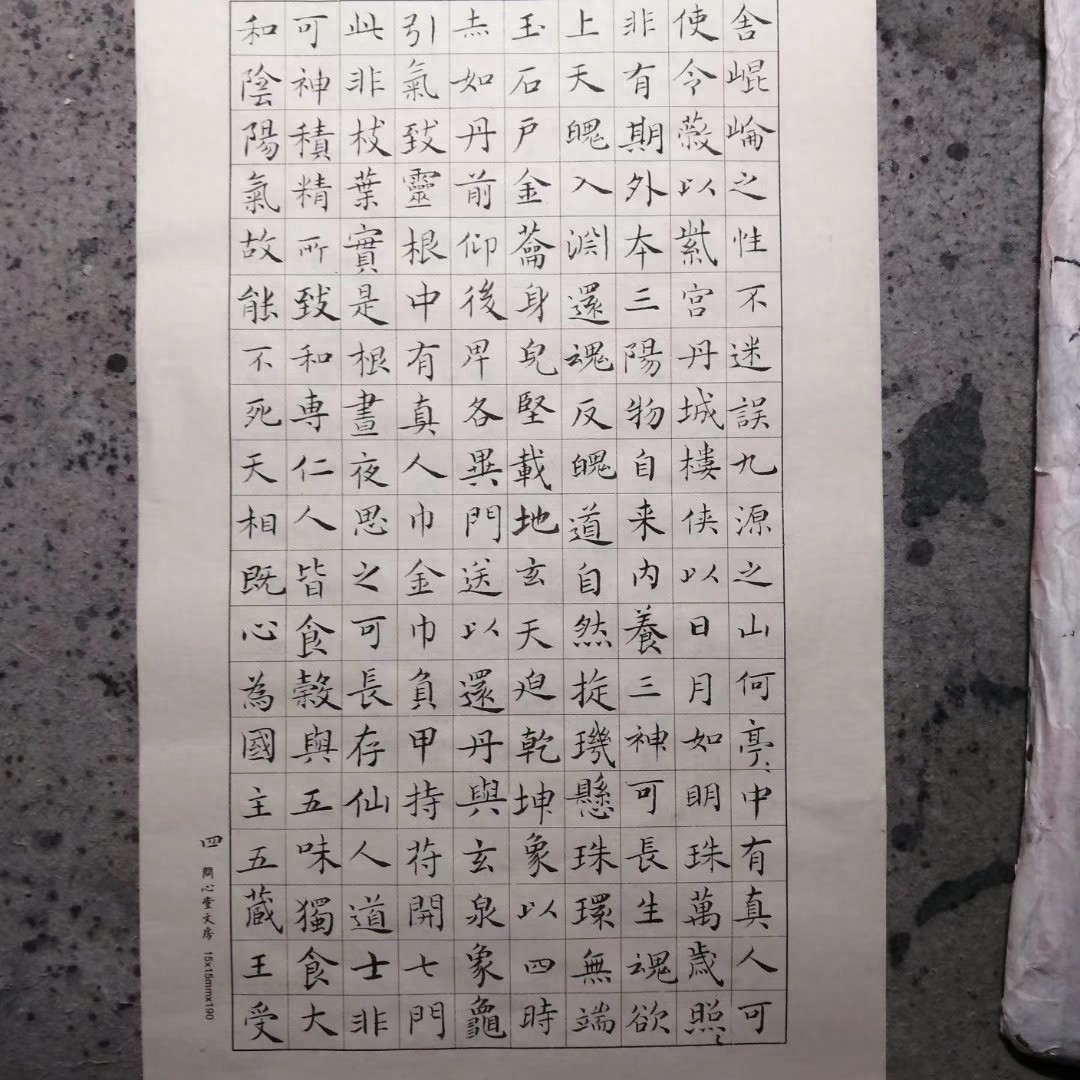 舍崐崘之性不迷誤九源之山何亭、中有真人可
使令蔱以紫宮丹城樓侠以日月如明珠萬歲照〻
非有期外本三陽物自来内養三神可長生魂欲
上天魄入淵還魂反魄道自然掟璣懸珠環無端
玉石戶金蘥身皃堅載地玄天迫乾坤象以四時
赤如丹前仰後卑各異門送以還丹與玄泉象龜
引氣致靈根中有真人巾金巾負甲持苻開七門
此非枝葉實是根晝夜思之可長存仙人道士非
可神積精所致和專仁人皆食榖與五味獨食大
和陰陽氣故能不死天相既心為國主五蔵王受
四 問心堂文房 15x15mmx190